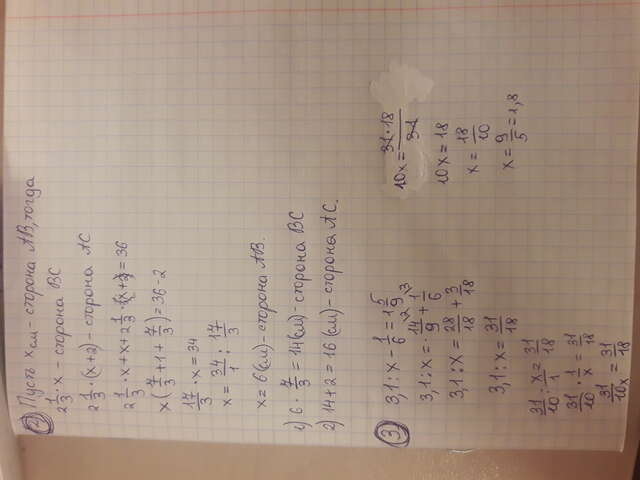 2) Пусть x см - сторона AB, тогда
2 1/3 · x - сторона BC
2 1/3 · (x+2) - сторона AC
2 1/3 · x + x + 2 1/3 · x + 2 = 36
x (7/3 + 1 + 7/3) = 36 - 2
17/3 · x = 34
x = 34/1 : 17/3
x = 6 (см) - сторона AB.
1) 6 · 7/3 = 14 (см) - сторона BC
2) 14 + 2 = 16 (см) - сторона AC.
3) 3,1 : x - 1/6 = 1 5/9
3,1 : x = 14/9 + 1/6
3,1 : x = 28/18 + 3/18
3,1 : x = 31/18
31/10 : x/1 = 31/18
31/10 · 1/x = 31/18
31/10x = 31/18
10x = 31·18/31
10x = 18
x = 18/10
x = 9/5 = 1,8